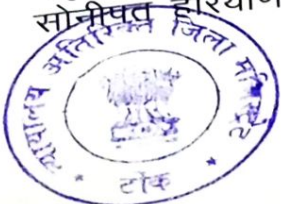 सोनीपत हरियाणा
न्यायालय अतिरिक्त जिला मजिस्ट्रेट
टोंक